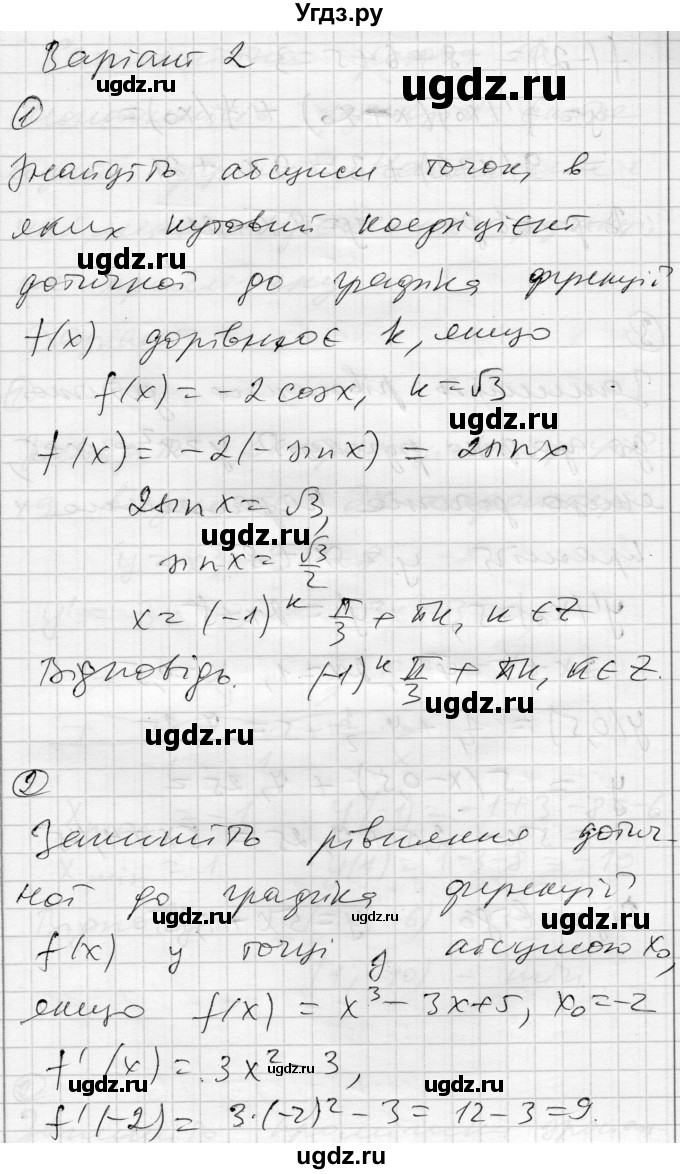 Угдз.ру
Варіант 2
ugdz.ru
ugdz.ru
1
Знайдіть абсциси точок, в
яких кутовий коефіцієнт
ugdz.ru
дотичної до графіка функції
f(x) дорівнює k, якщо
f(x) = -2cosx, k = √3
ugdz.ru
f'(x) = -2(-sinx) = 2sinx
2sinx = √3,
ugdz.ru
sinx = √3/2
x = (-1)^k π/3 + πk, k ∈ Z
ugdz.ru
Відповідь. (-1)^k π/3 + πk, k ∈ Z.
ugdz.ru
ugdz.ru
2
Запишіть рівняння дотич-
ної до графіка функції
ugdz.ru
ugdz.ru
ugdz.ru
f(x) у точці з абсцисою x₀,
якщо f(x) = x³ - 3x + 5, x₀ = -2
f'(x) = 3x² - 3,
ugdz.ru
ugdz.ru
ugdz.ru
f'(-2) = 3·(-2)² - 3 = 12 - 3 = 9.
ugdz.ru